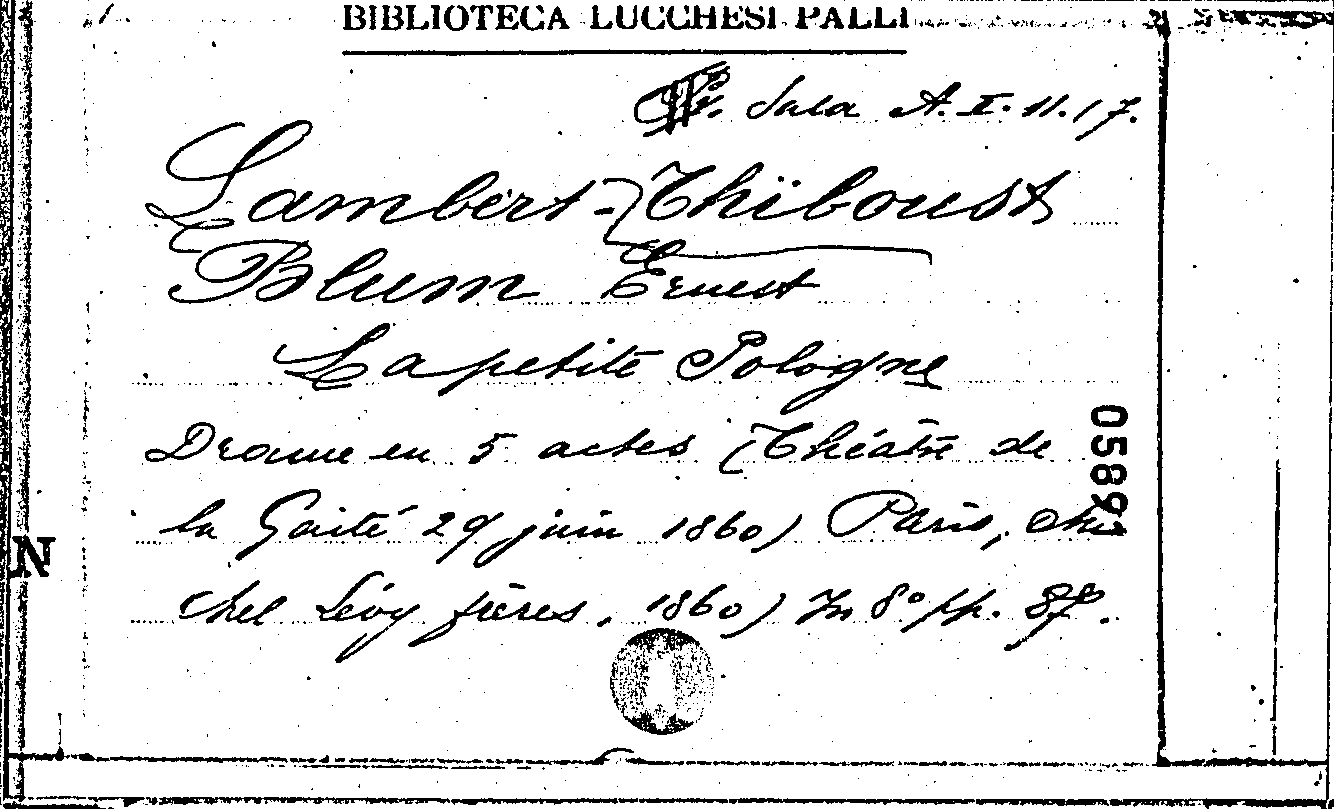 BIBLIOTECA LUCCHESI PALLI
Sala A. I. 11. 17.
Lambert-Thiboust
Blum Ernest
La petite Pologne
Drame en 5 actes (Théâtre de
la Gaité 29 juin 1860) Paris,
chel Lévy frères, 1860) In 8° pp.
05891
N